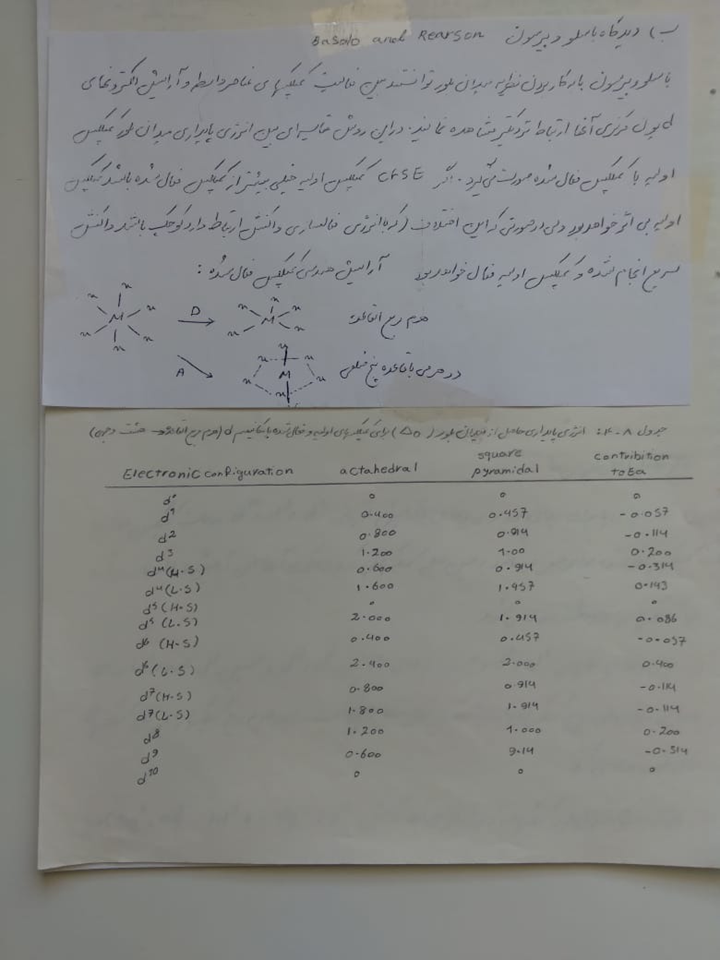 ب) دیدگاه باسلو و پیرسون Basolo and Rearson
باسلو و پیرسون با بکار بردن نظریه میدان بلور توانستند بین فعالیت کمپلکسهای عناصر واسطه و آرایش الکترونهای
d یون مرکزی آنها ارتباط نزدیکتر مشاهده نمایند. در این روش مقایسه ای بین انرژی پایداری میدان بلور کمپلکس
اولیه با کمپلکس فعال شده صورت می گیرد. اگر CFSE کمپلکس اولیه خیلی بیشتر از کمپلکس فعال شده باشد کمپلکس
اولیه بی اثر خواهد بود ولی در صورتی که این اختلاف (که با انرژی فعالسازی واکنش ارتباط دارد کوچک باشد واکنش
سریع انجام شده و کمپلکس اولیه فعال خواهد بود آرایش هندسی کمپلکس فعال شده:
n n n n M n n D n n M n n n هرم مربع القاعده
A n n n M n n دو هرمی با قاعده پنج ضلعی
جدول ۸-۴: انرژی پایداری حاصل از میدان بلور (Δo) برای کمپلکس های اولیه و فعال شده با مکانیسم d (هرم مربع القاعده → هشت وجهی)
Electronic configuration actahedral square pyramidal contribition to Ea
d° 0 0 0
d1 0.400 0.457 -0.057
d2 0.800 0.914 -0.114
d3 1.200 1.00 0.200
d4 (H.S) 0.600 0.914 -0.314
d4 (L.S) 1.600 1.457 0.143
d5 (H.S) 0 0 0
d5 (L.S) 2.000 1.914 0.086
d6 (H.S) 0.400 0.457 -0.057
d6 (L.S) 2.400 2.000 0.400
d7 (H.S) 0.800 0.914 -0.114
d7 (L.S) 1.800 1.914 -0.114
d8 1.200 1.000 0.200
d9 0.600 9.14 -0.314
d10 0 0 0